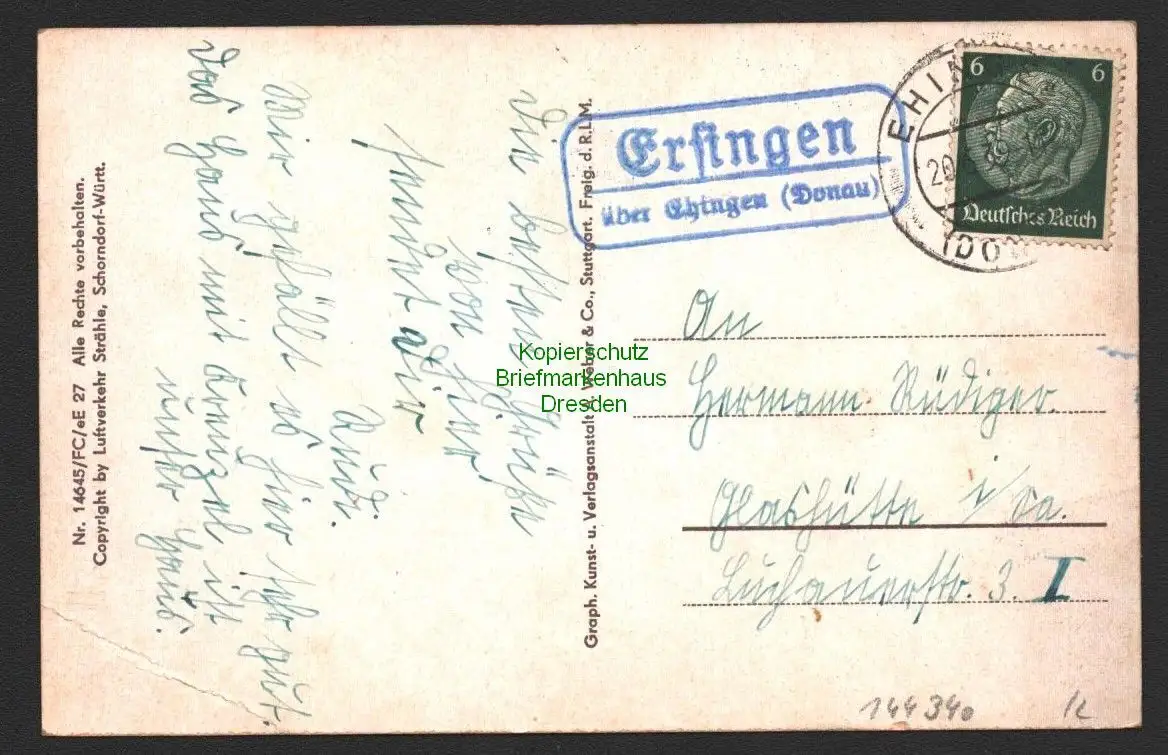 Nr. 14645/FC/eE 27 Alle Rechte vorbehalten.
Copyright by Luftverkehr Strähle, Schorndorf-Württ.
Die besten Grüße
von hier
sendet Dir
Rud.
Mir gefällt es hier sehr gut.
Das Haus mit Kreuzel ist
unser Haus.
Graph. Kunst- u. Verlagsanstalt A. Weber & Co., Stuttgart. Freig. d. R.L.M.
Ersingen
über Ehingen (Donau)
EHIN
20
(DO
6 6
Deutsches Reich
An
Hermann Rüdiger.
Glashütte i/Sa.
Luchauerstr. 3. I
Kopierschutz
Briefmarkenhaus
Dresden
144340